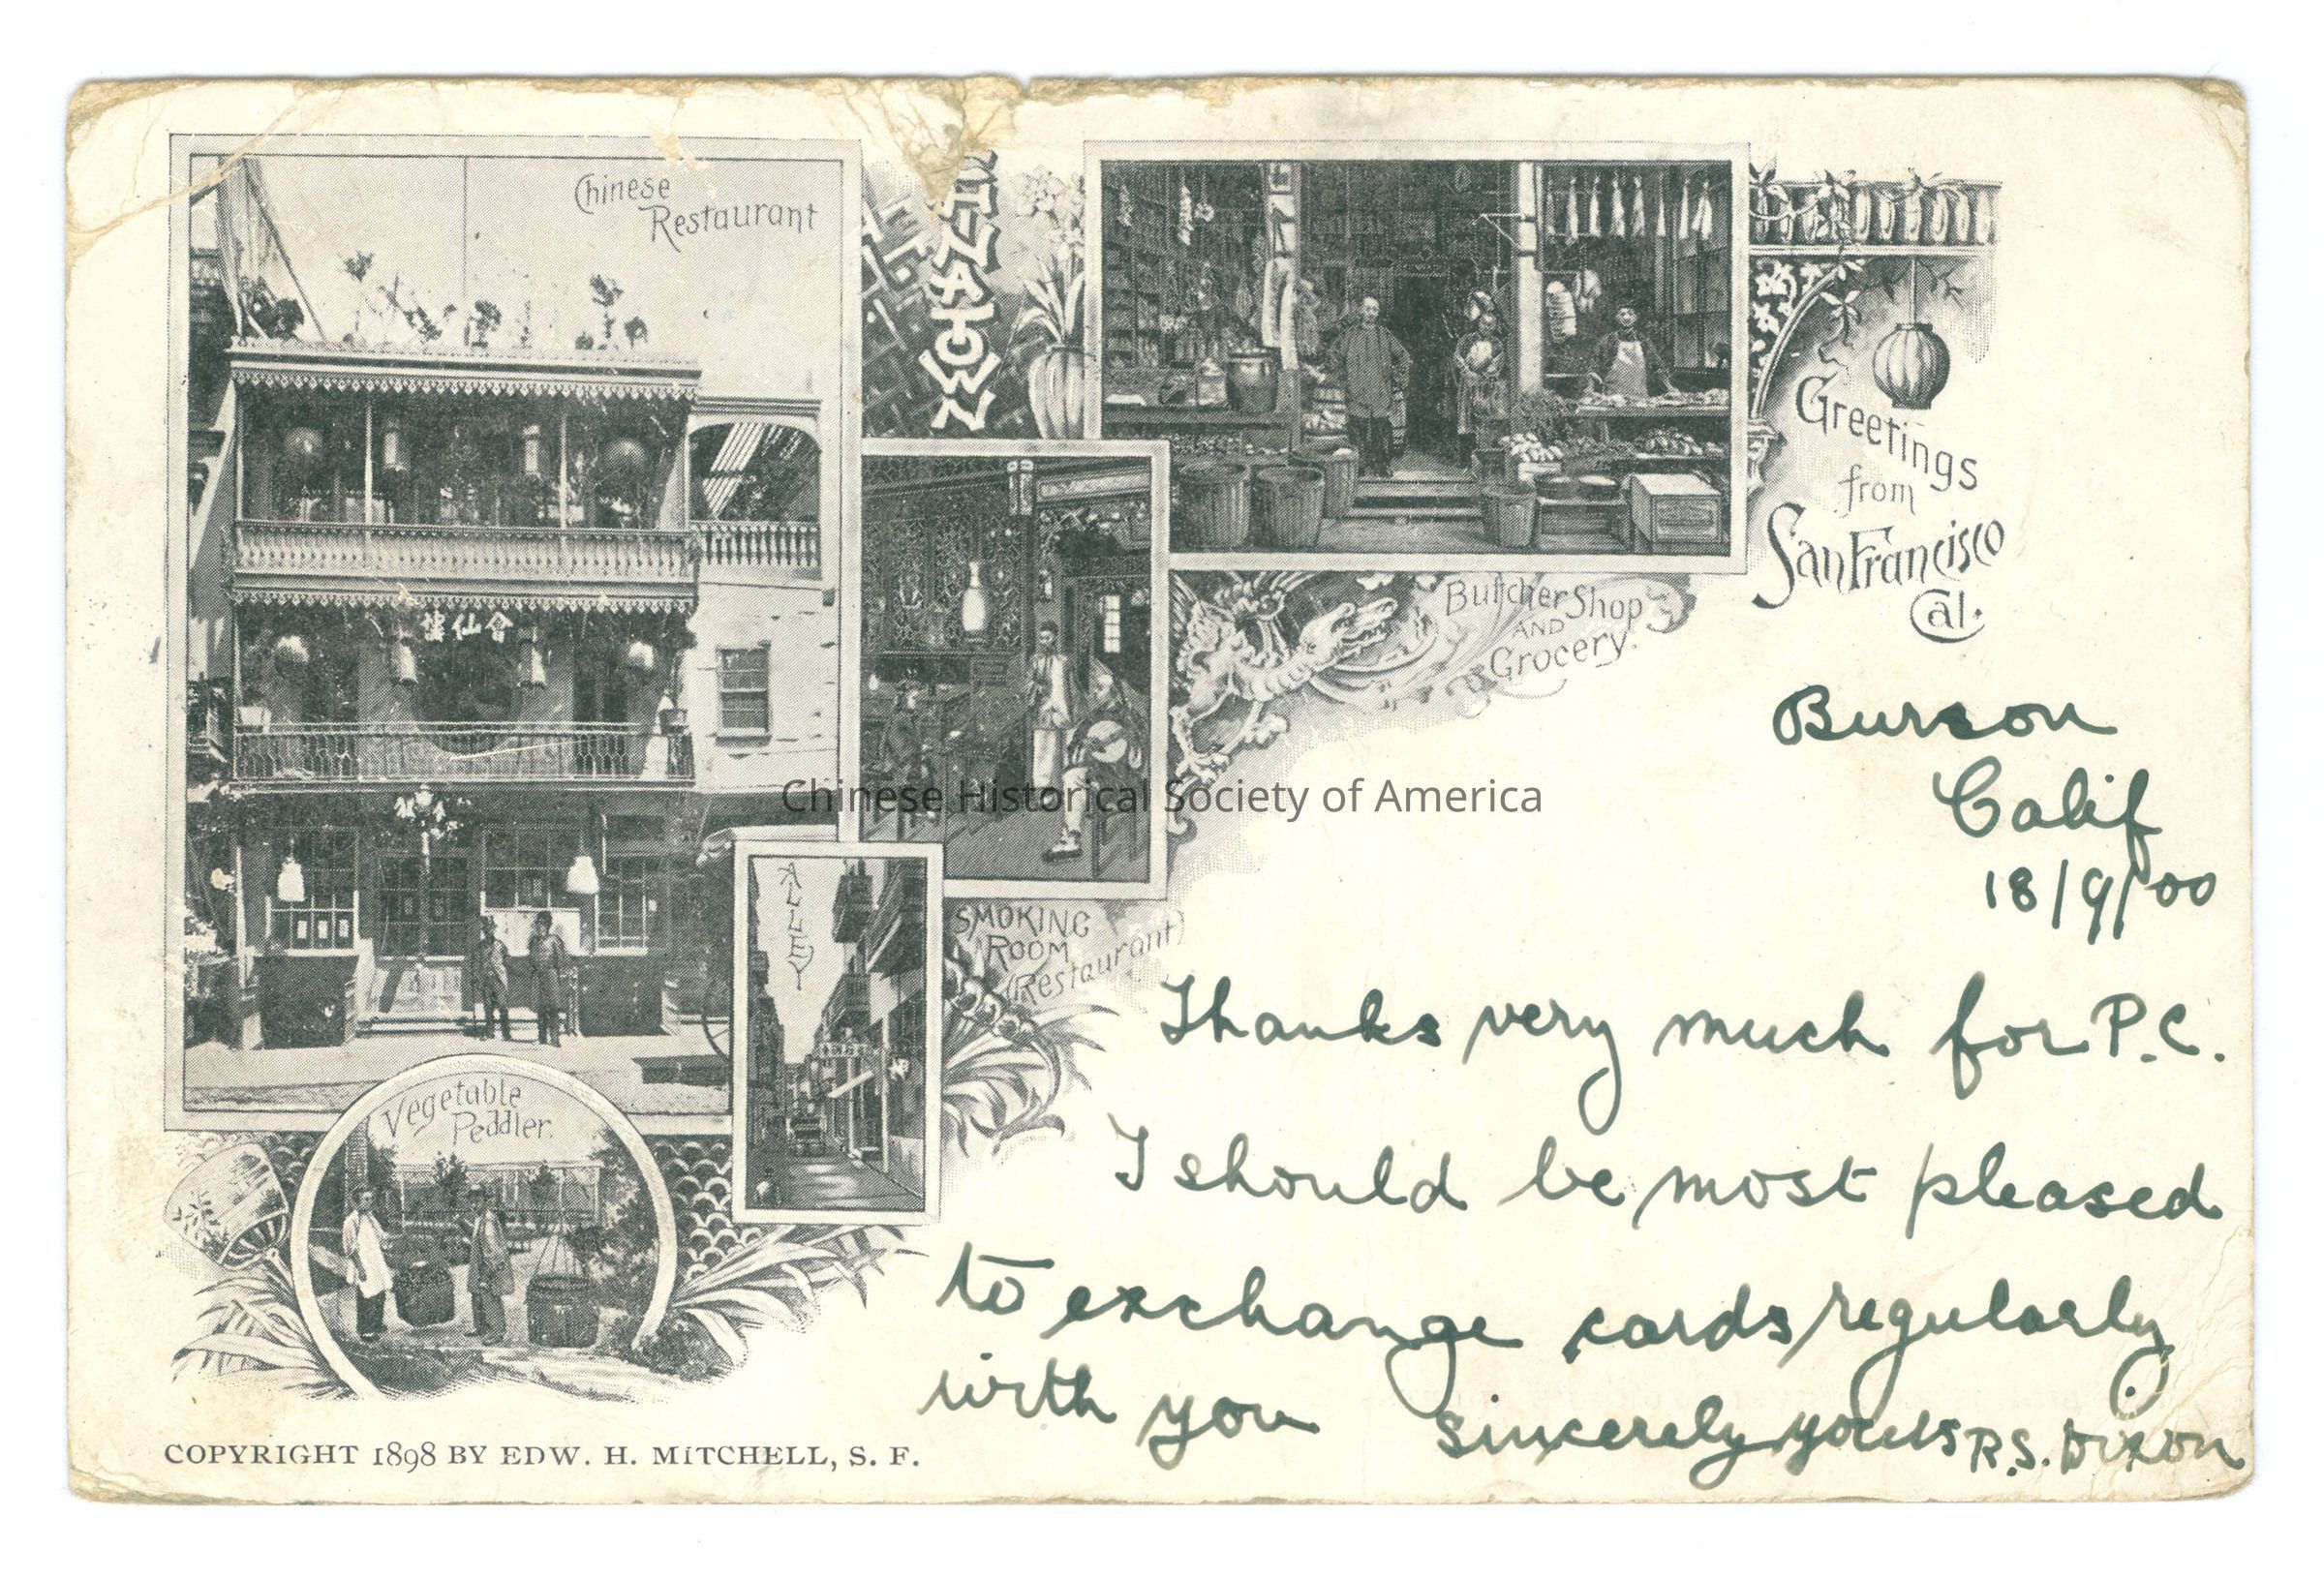 Chinese
Restaurant
HINATOWN
Greetings
from
San Francisco
Cal.
Butcher Shop
AND
Grocery.
會仙
SMOKING
ROOM
(Restaurant)
ALLEY
Vegetable
Peddler.
Burson
Calif
18/9/00
Thanks very much for P.C.
I should be most pleased
to exchange cards regularly
with you sincerely yours R.S. Dixon
COPYRIGHT 1898 BY EDW. H. MITCHELL, S. F.
Chinese Historical Society of America